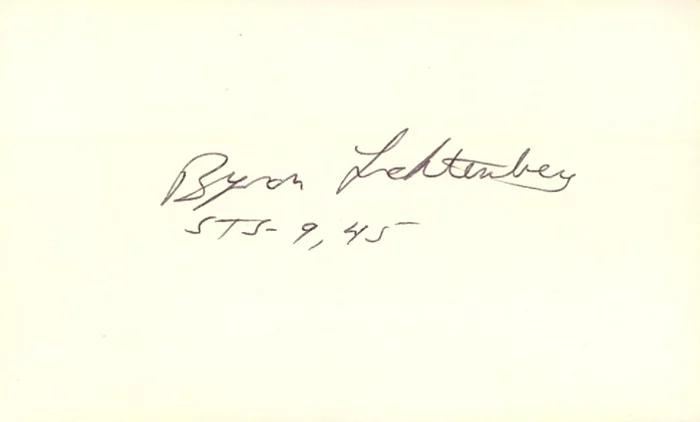 Byron Lichtenberg
STS-9, 45